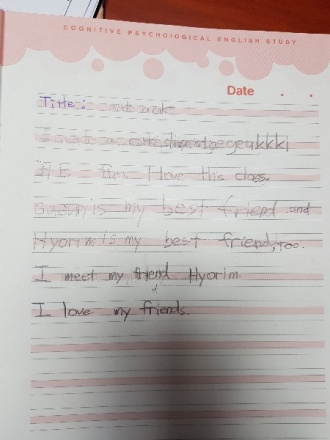 COGNITIVE PSYCHOLOGICAL ENGLISH STUDY
Date . .
Title:
It is fun. I love this class.
is my best friend and
Hyorim is my best friend, too.
I meet my friend Hyorim.
I love my friends.